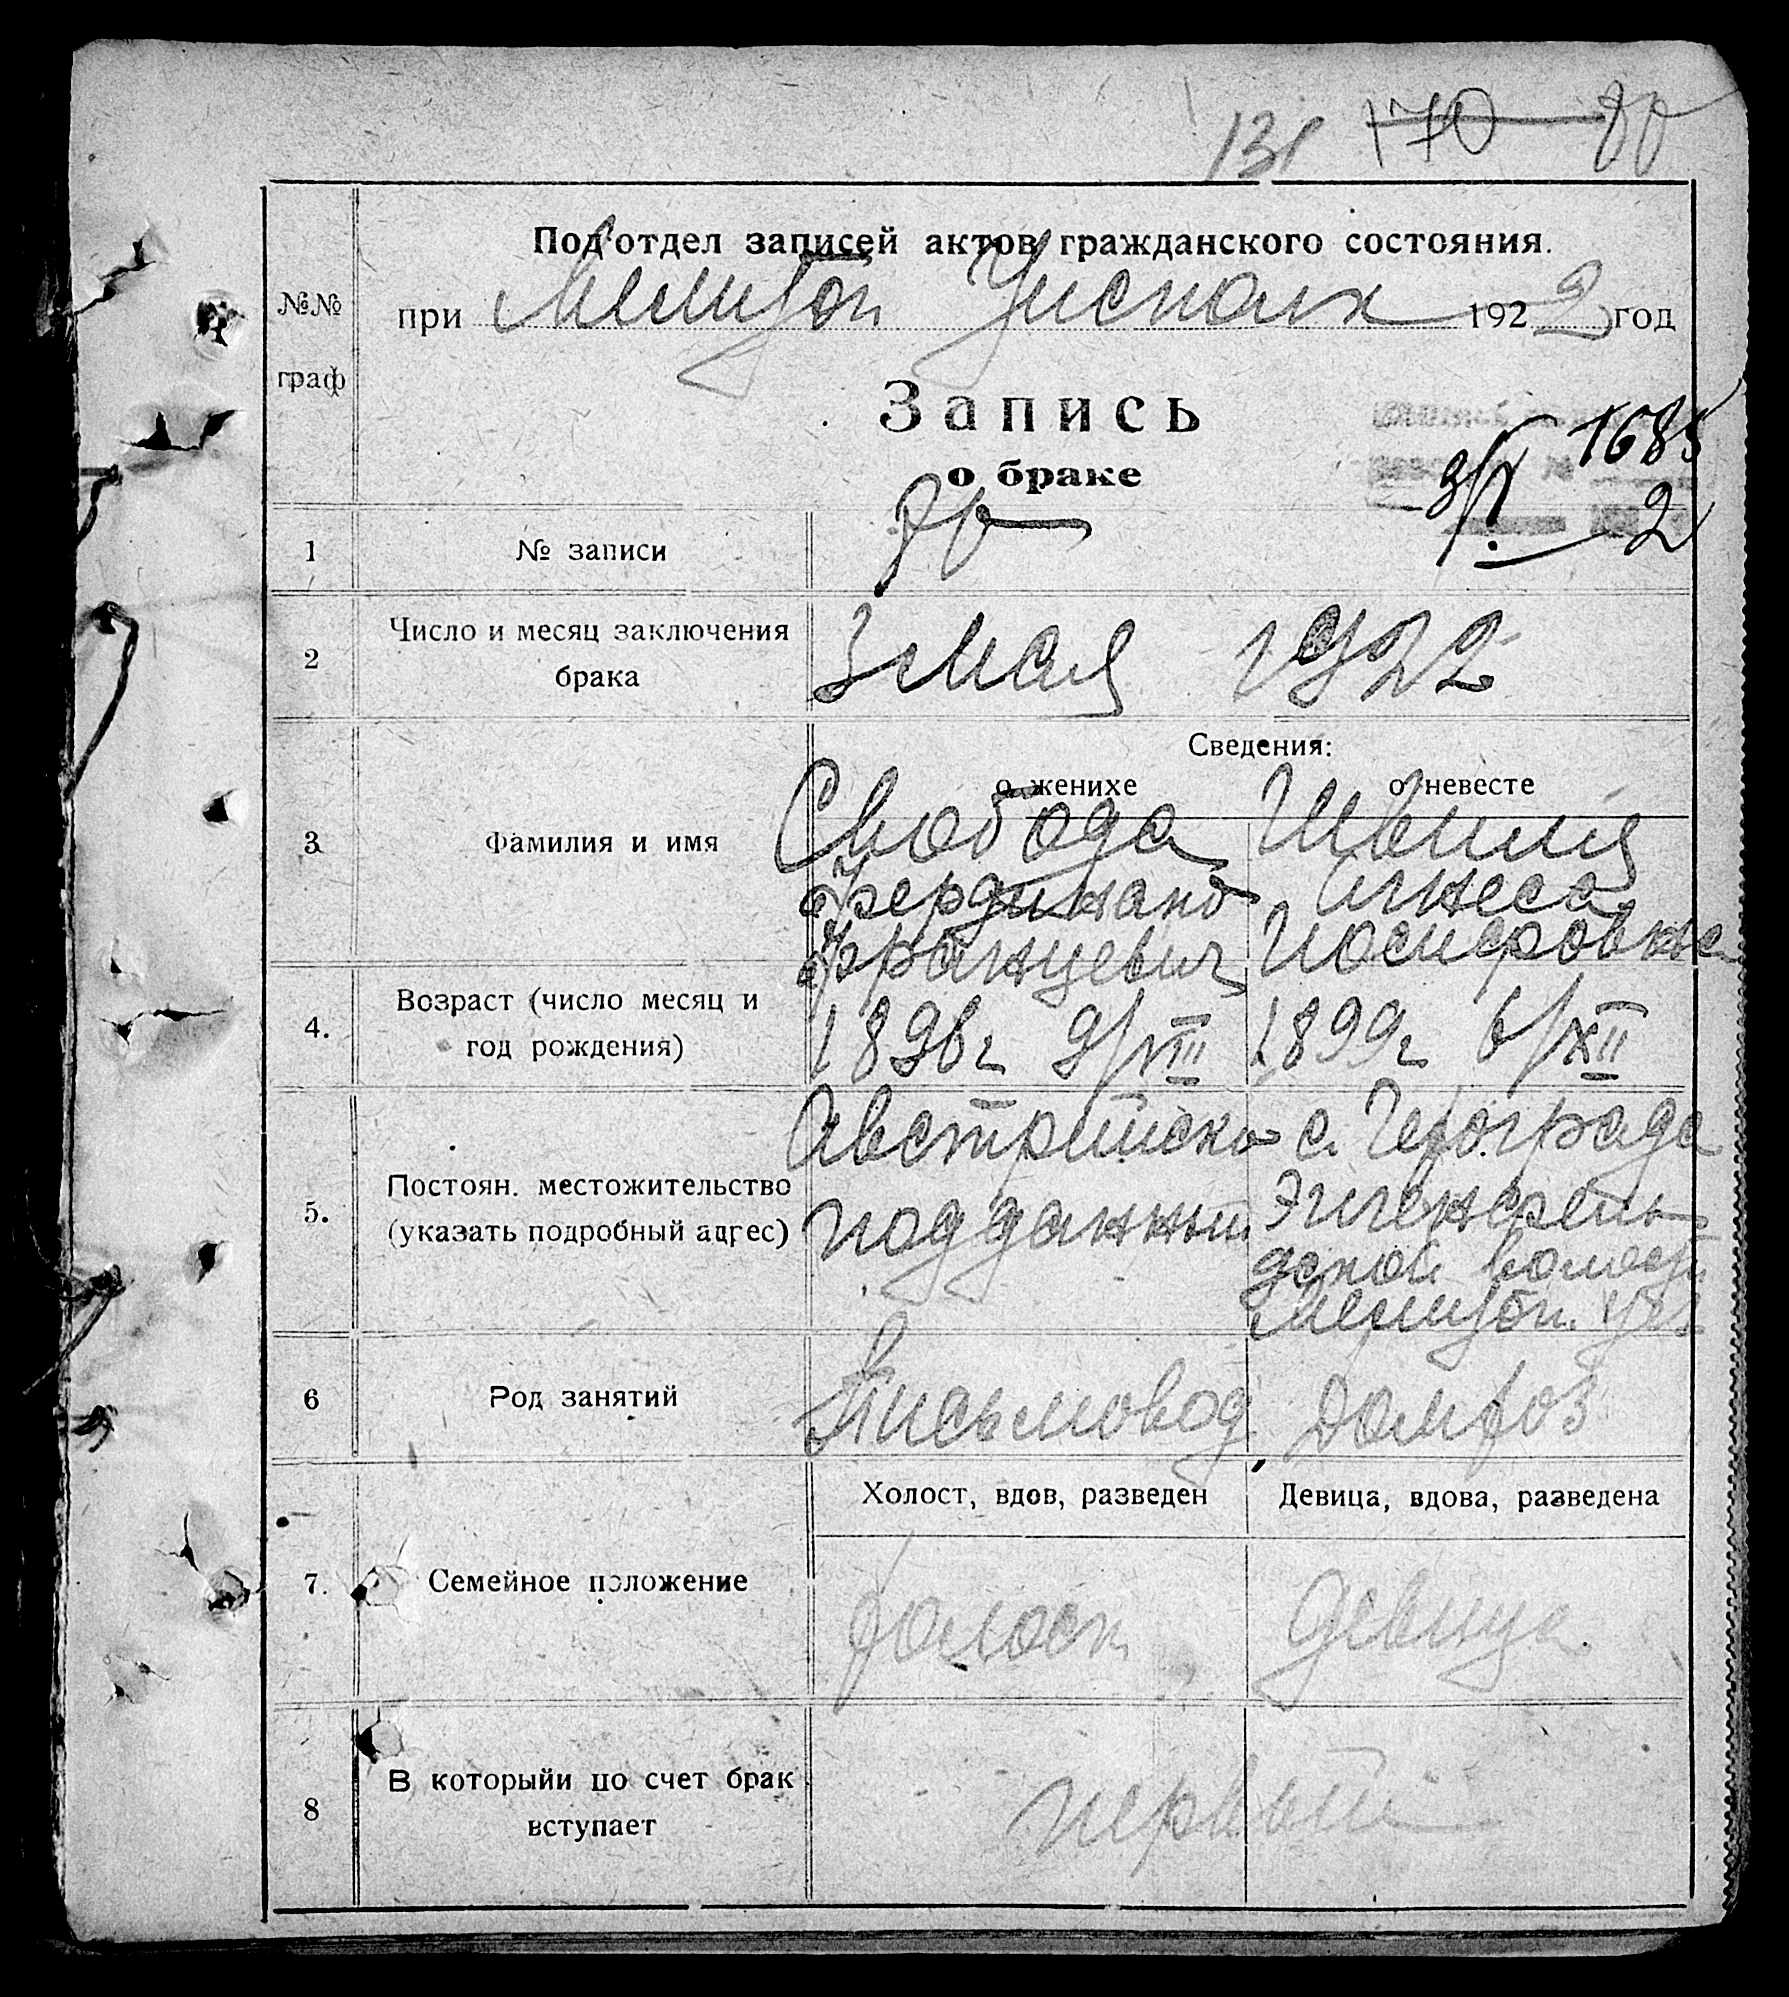 131 170 80
Подотдел записей актов гражданского состояния.
№№ граф
при Мелитоп Уисполк 1922 год
Запись
о браке
1685
1 № записи 80
2 Число и месяц заключения брака 3 мая 1922
Сведения:
о женихе о невесте
3 Фамилия и имя
Свобода
Фердинанд
Францевич
Агнеса
Иосифовна
4. Возраст (число месяц и год рождения) 1896г 9/VIII 1899г 6/XII
5. Постоян. местожительство (указать подробный адрес)
Австрийско
подданный
с.
Эйгенфель
дской волости
Мелитоп. уез
6 Род занятий Письмовод Домхоз
Холост, вдов, разведен Девица, вдова, разведена
7. Семейное положение холост девица
8 В которыйи по счет брак вступает первый